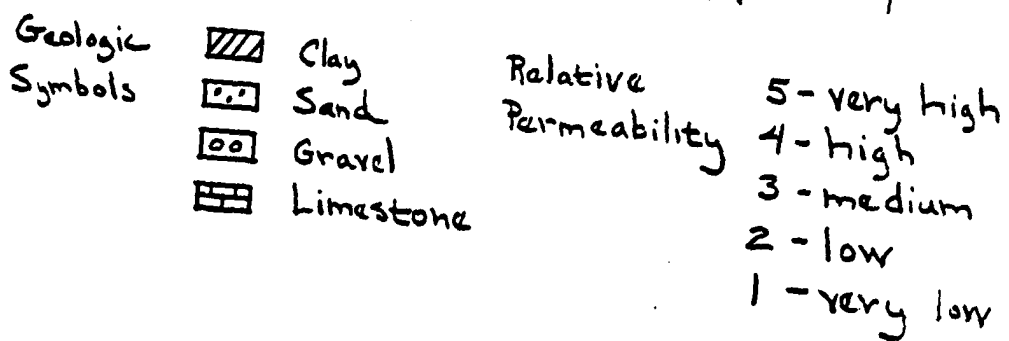 Geologic
Symbols
Clay
Sand
Gravel
Limestone
Relative
Permeability
5 - very high
4 - high
3 - medium
2 - low
1 - very low